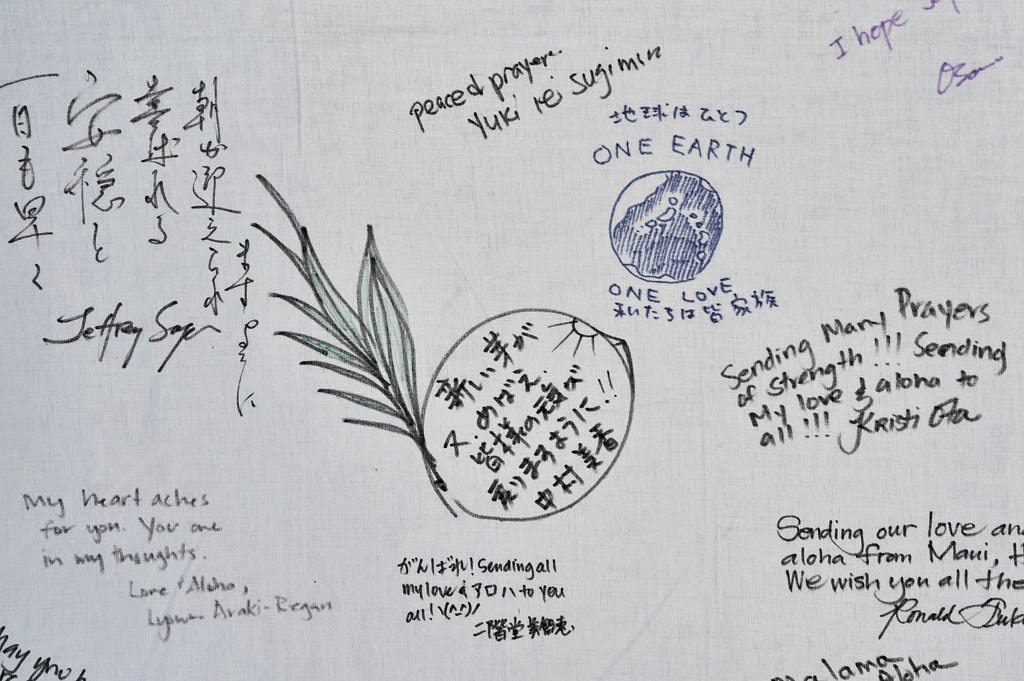 一日も早く
安穏と
暮せれる
朝が迎えられ
ますように
Jeffrey
peace & prayer
Yuki rei Sugimura
I hope
地球はひとつ
ONE EARTH
ONE LOVE
私たちは皆家族
新しい芽が
めばえ、
皆様の元気が
戻りますように!!
中村美香
Sending Many Prayers
of strength!!! Sending
My love & aloha to
all!!! Kristi
My heart aches
for you. You are
in my thoughts.
Love & Aloha,
Lynn Araki-Regan
がんばれ! Sending all
my love & アロハ to you
all! \(^-^)/
二階堂美智恵
Sending our love and
aloha from Maui, H
We wish you all the
Ronald
may you
malama
Aloha